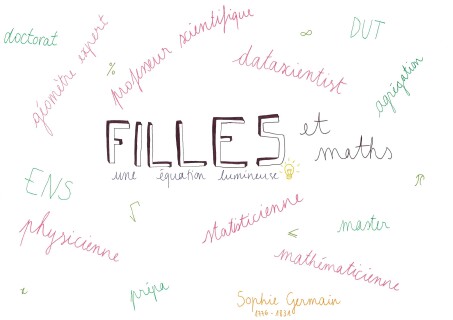 doctorat
géomètre expert
%
professeur scientifique
∞
DUT
datascientist
agrégation
FILLES et maths
une équation lumineuse
ENS
physicienne
√
statisticienne
≤
master
π
mathématicienne
x
prépa
Sophie Germain
1776-1831